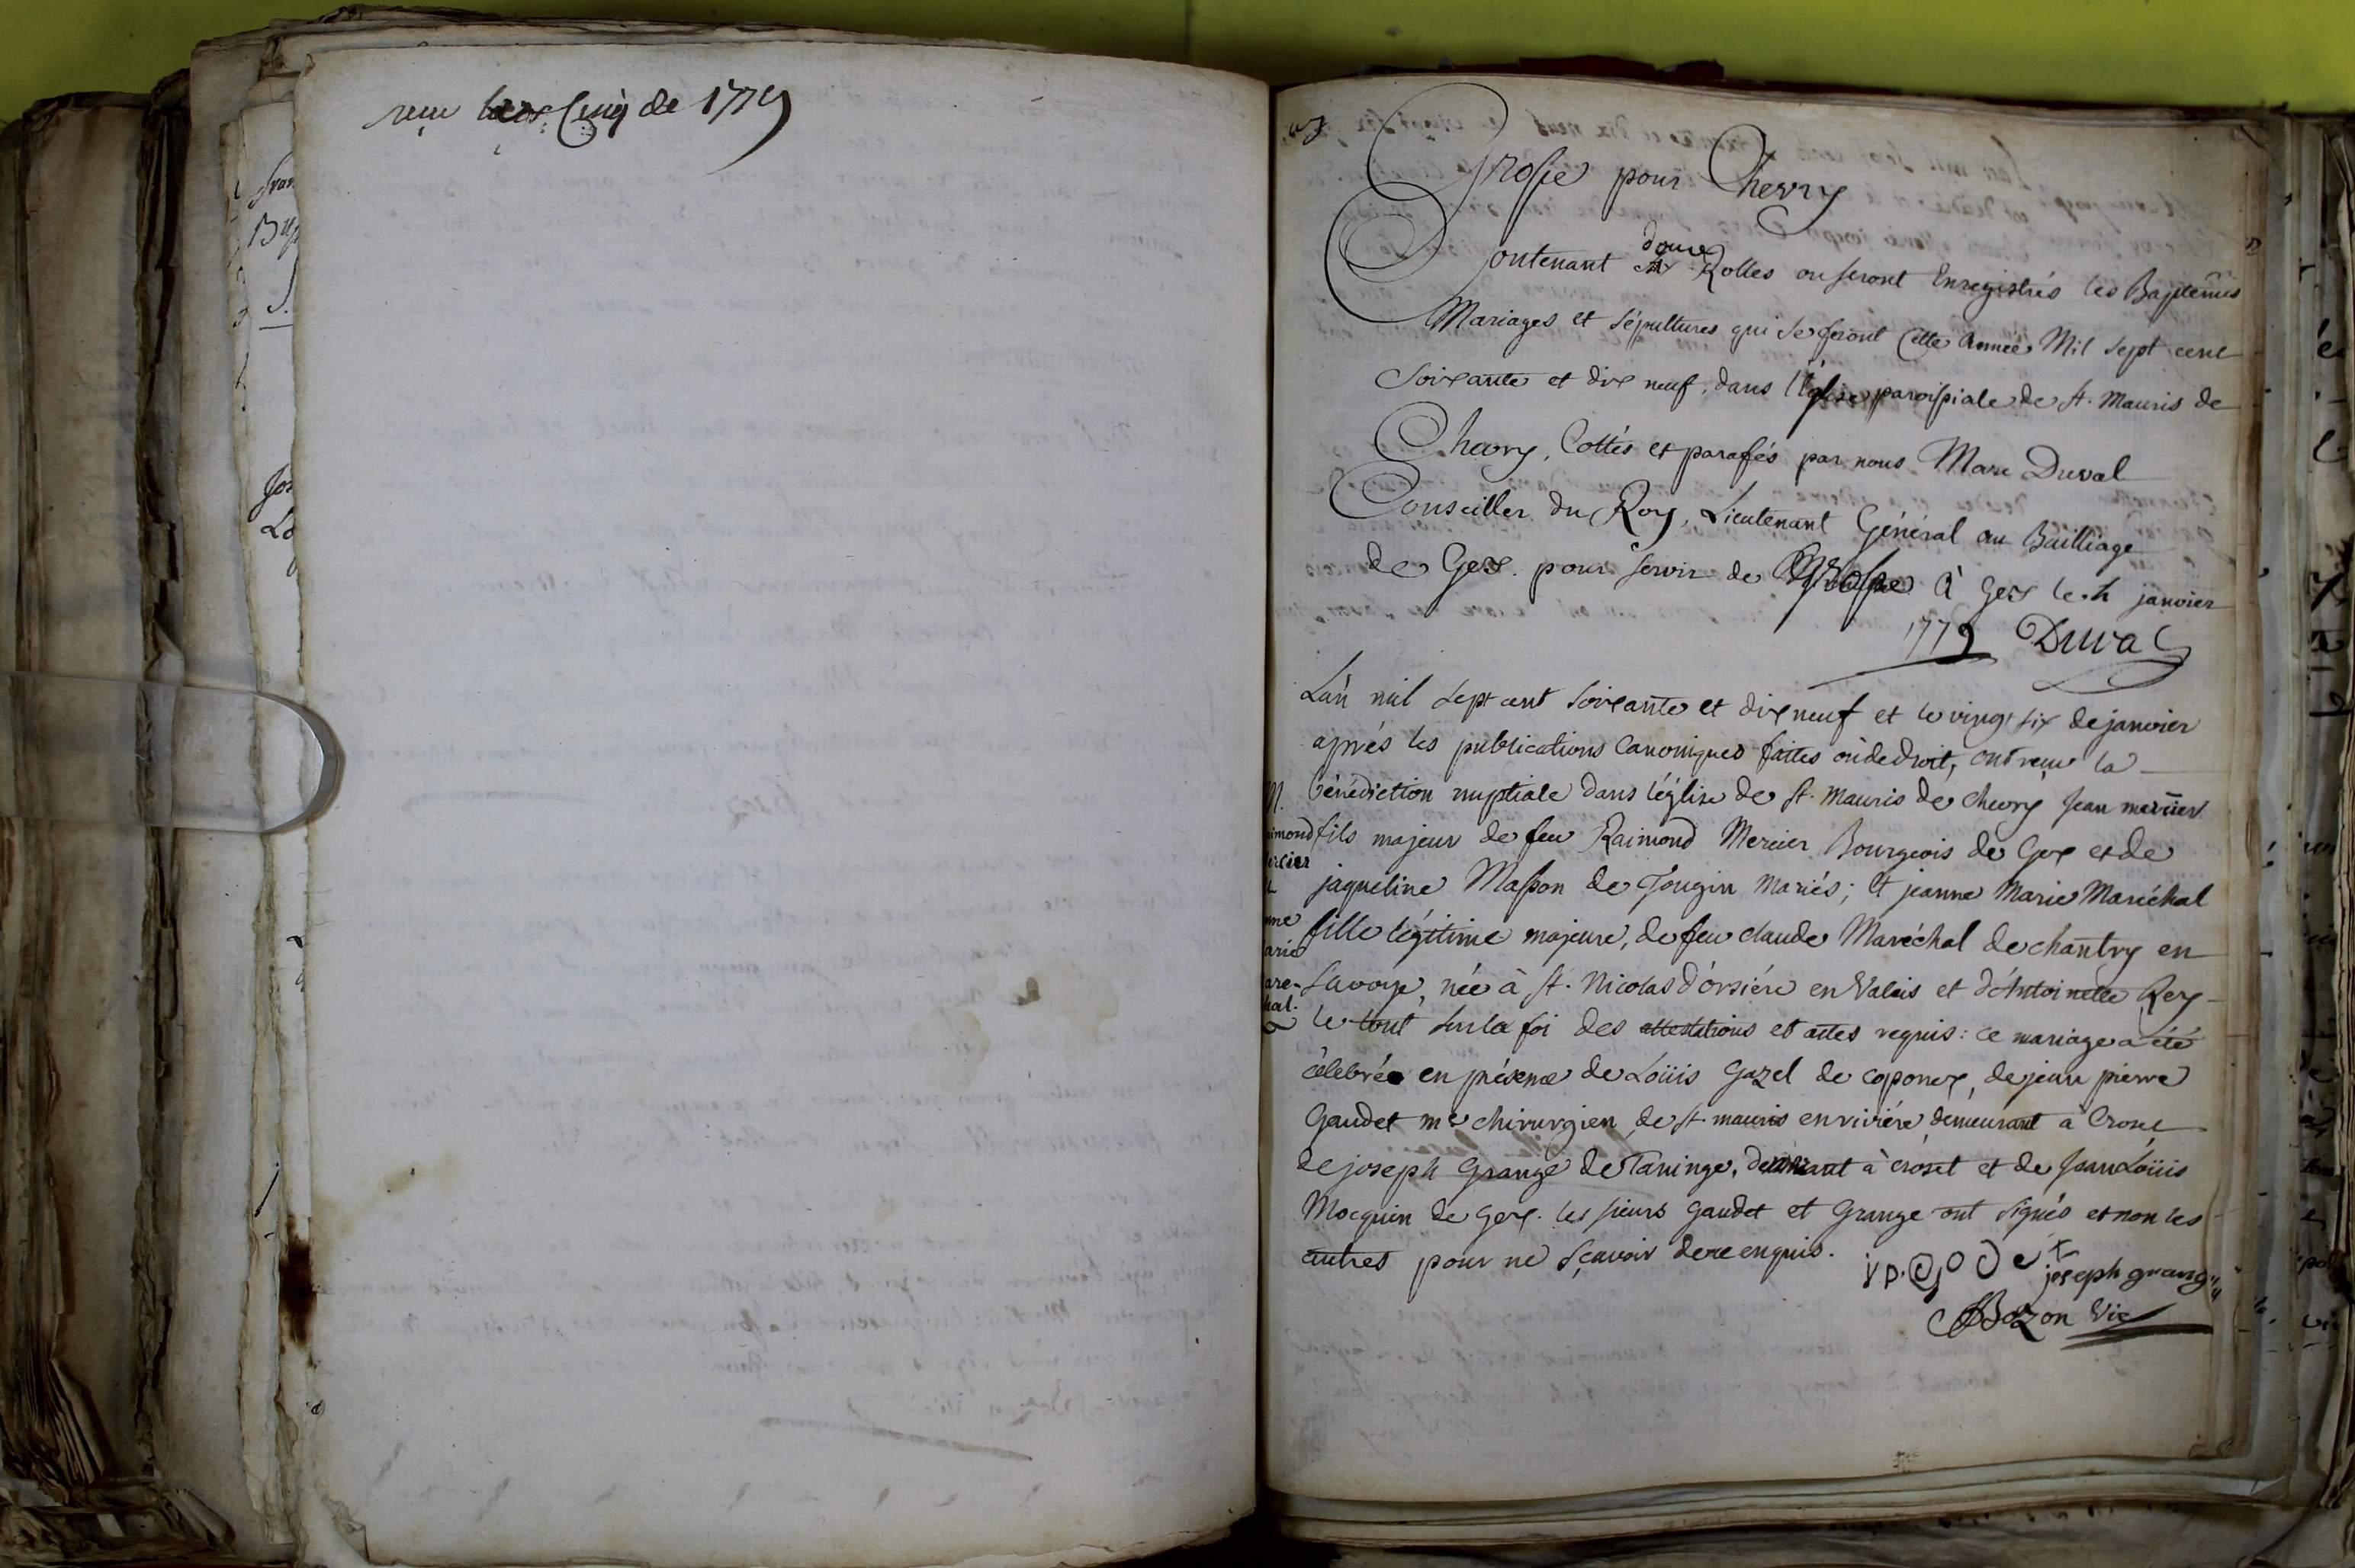 reçu de 1779
Grosse pour Chevry
Contenant douze Rolles ou seront Enregistrés les Baptêmes
Mariages et sépultures qui se feront Cette Année Mil sept cent
Soixante et dix neuf, dans l'Eglise paroissiale de St. Mauris de
Chevry, Cottés et parafés par nous Marc Duval
Conseiller du Roy, Lieutenant Général au Bailliage
de Gex. pour servir de Grosse À Gex le janvier
1779 Duval
Lan mil sept cent soixante et dix neuf et le vingt six de janvier
aprés les publications Canoniques faittes où de droit, ont reçu la
bénédiction nuptiale dans l'église de st. mauris de chevry Jean mercier
fils majeur de feu Raimond Mercier Bourgeois de Gex et de
jaqueline Masson de Tougin mariés; et jeanne Marie Maréchal
fille légitime majeure, de feu claude Maréchal de chantry en
Savoye, née à st. Nicolas d'orsiére en Valais et d'Antoinette Rey
le tout sur la foi des attestations et actes requis: ce mariage a été
célébré en présence de Loüis Gazel de coponex, de jean pierre
Gaudet me chirurgien de st. mauris en riviére demeurant a Croset
de joseph Grange de Taninge, demeurant à croset et de Jean Loüis
Mocquin de Gex. les sieurs Gaudet et Grange ont signés et non les
autres pour ne sçavoir de ce enquis.
M.
imond
ercier
et
nne
arie
are-
hal.
j p. Godet
joseph grange
Bozon Vic